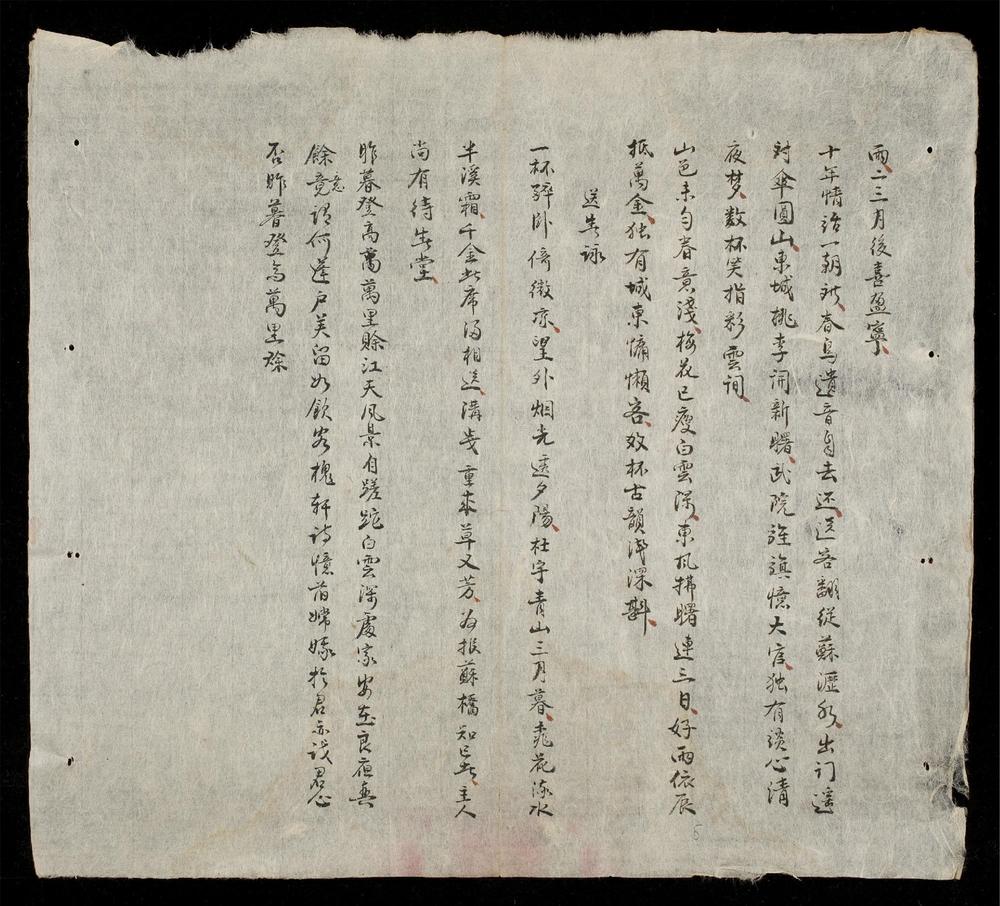 雨、二三月後喜盈寧、
十年情話一朝、春鳥遺音自去还、送客翻從蘇瀝水、出门遥
対傘圓山、東城桃李開新曙、武院旌旗憶大官、独有談心清
夜梦、数杯笑指彩雲间、
山色未匀春意淺、梅花已瘦白雲深、東風拂曙連三日、好雨依辰
抵萬金、独有城東慵懶客、效杯古韻浅深斟、
送吿詠
一杯醉卧倚微凉、望外烟光透夕陽、杜宇青山三月暮、桃花流水
半溪霜、千金此席深相送、溝幾重來草又芳、為報蘇橋知已此、主人
尚有待吿堂、
昨暮登高萬萬里賒江天风景自蹉跎白雲深處家安在良夜無
餘竟謂何蓬戸美留如飲客槐軒詩憶首嫦娥於君亦設君心
否昨暮登高萬里賒
5